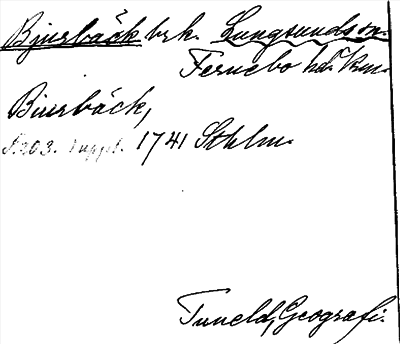 Bjurbäck brk. Lungsunds sn.
Fernebo hd. Vrm.
Biurbäck,
S. 203. Suppl. 1741 Sthlm.
Tuneld, Geografi.